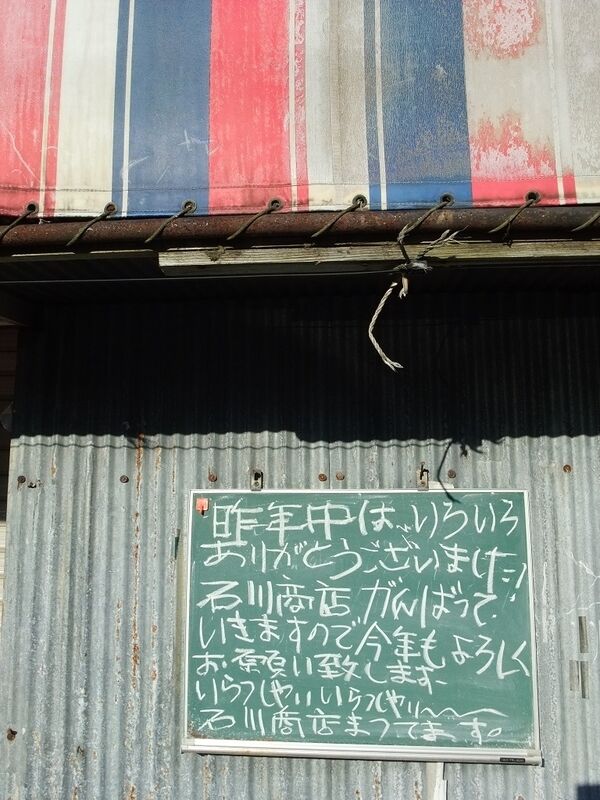 昨年中は、いろいろ
ありがとうございました!
石川商店がんばって
いきますので今年もよろしく
お願い致します。
いらっしゃいいらっしゃい〜〜〜
石川商店まってます。